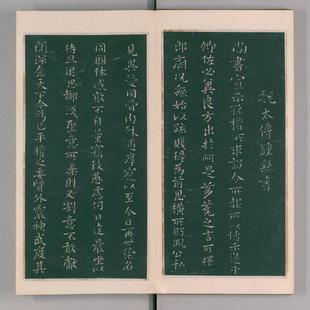 魏太傅鍾繇書
尚書宣示孫權所求詔令所報所以博示逮于
卿佐必冀良方出於阿是芻蕘之言可擇
郎廟況繇始以疏賤得為前恩橫所盱睨公私
見異愛同骨肉殊遇厚寵以至今日再世榮名
同國休戚敢不自量竊致愚慮仍日達晨坐以
待旦退思鄙淺聖意所棄則又割意不敢獻
聞深念天下今為已平權之委質外震神武度其